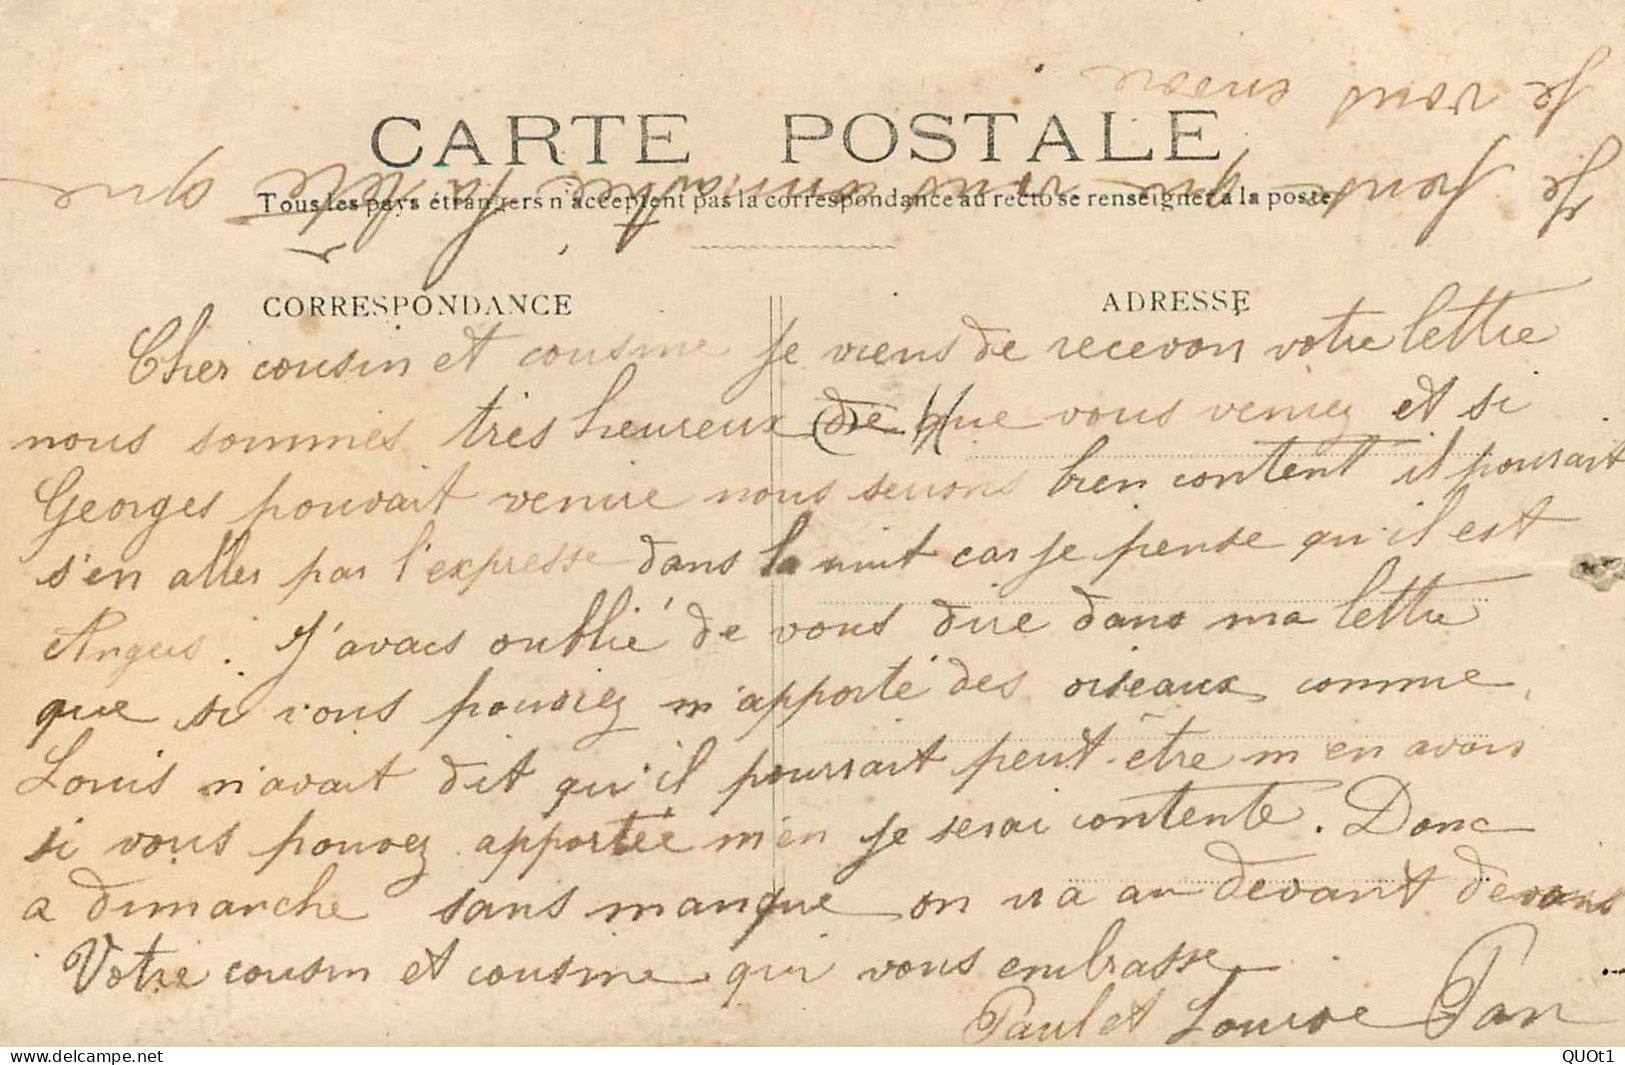 CARTE POSTALE
Tous les pays étrangers n'acceptent pas la correspondance au recto se renseigner à la poste
CORRESPONDANCE ADRESSE
Cher cousin et cousine je viens de recevoir votre lettre
nous sommes très heureux de que vous veniez et si
Georges pouvait venire nous serions bien content il pourait
s'en aller par l'expresse dans la nuit car je pense qu'il est
Angers. J'avais oublié de vous dire dans ma lettre
que si vous pouviez m'apporté des oiseaux comme
Louis m'avait dit qu'il pourrait peut-être m'en avoir
si vous pouvez apportée m'en je serai contente. Donc
a dimanche sans manque on ira au devant de vous
Votre cousin et cousine qui vous embrasse
Paul et Louise Pan
Je pense que vous la fête que
Je vous envoie
www.delcampe.net
QUOt1